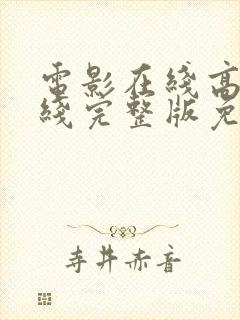 電影在綫高
綫完整版免
寺井赤音